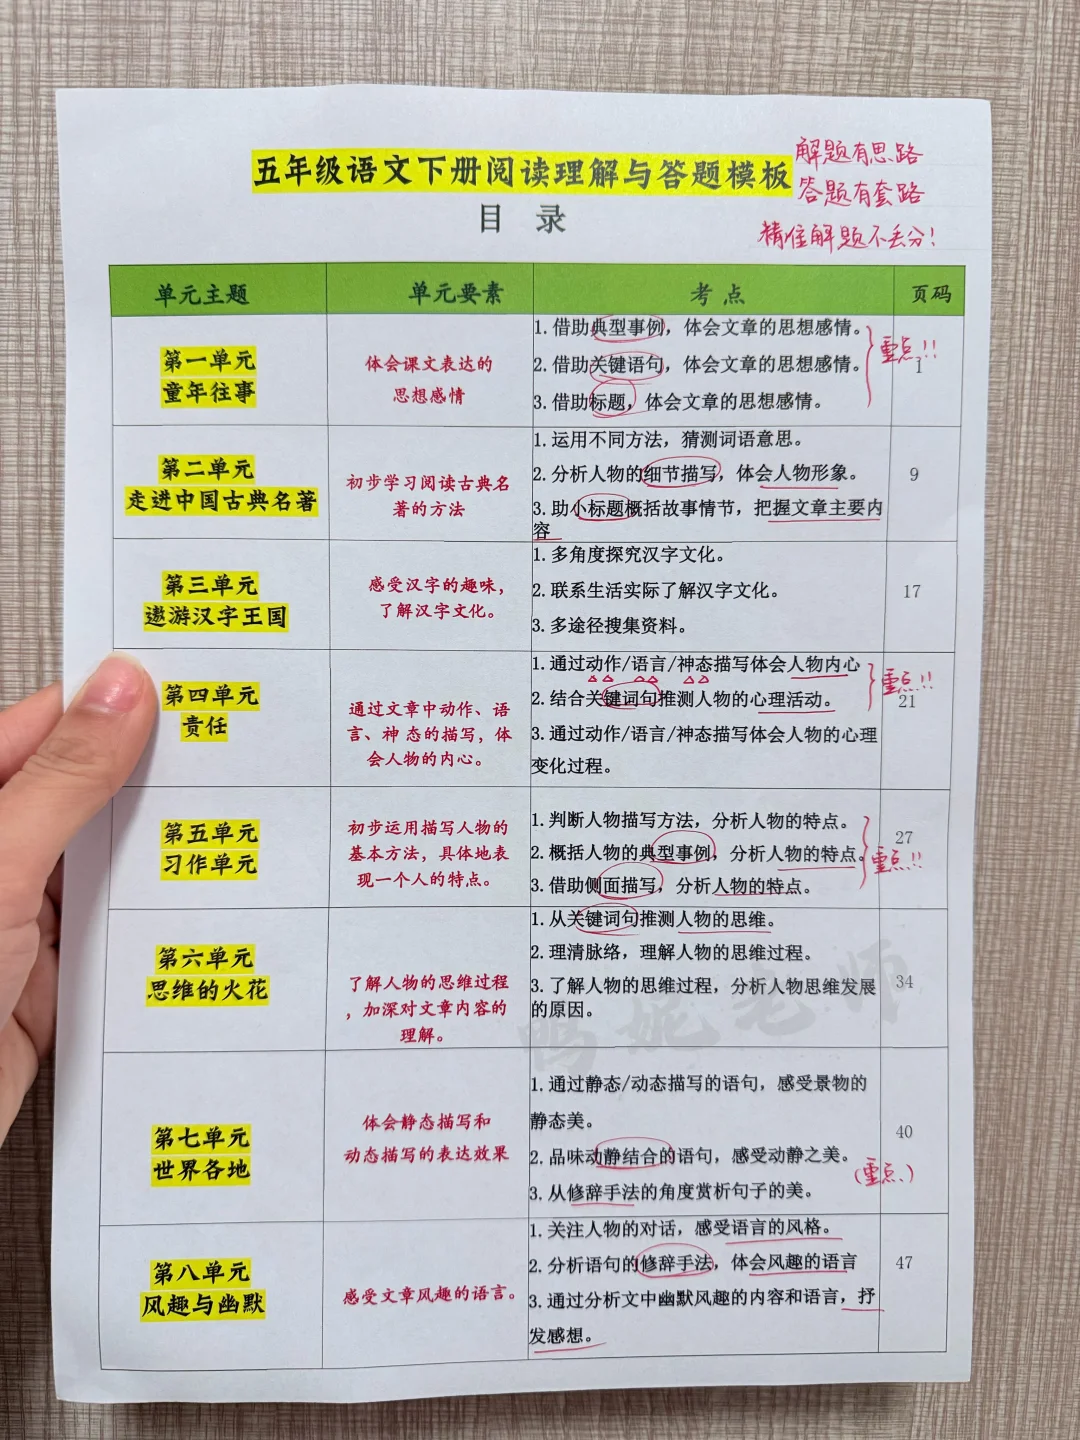 五年级语文下册阅读理解与答题模板
解题有思路
答题有套路
精准解题不丢分！
目 录
单元主题 单元要素 考点 页码
第一单元
童年往事
体会课文表达的
思想感情
1.借助典型事例，体会文章的思想感情。
2.借助关键语句，体会文章的思想感情。
3.借助标题，体会文章的思想感情。
重点!!
1
第二单元
走进中国古典名著
初步学习阅读古典名
著的方法
1.运用不同方法，猜测词语意思。
2.分析人物的细节描写，体会人物形象。
3.助小标题概括故事情节，把握文章主要内
容
9
第三单元
遨游汉字王国
感受汉字的趣味，
了解汉字文化。
1.多角度探究汉字文化。
2.联系生活实际了解汉字文化。
3.多途径搜集资料。
17
第四单元
责任
通过文章中动作、语
言、神 态的描写，体
会人物的内心。
1.通过动作/语言/神态描写体会人物内心
2.结合关键词句推测人物的心理活动。
3.通过动作/语言/神态描写体会人物的心理
变化过程。
重点!!
21
第五单元
习作单元
初步运用描写人物的
基本方法，具体地表
现一个人的特点。
1.判断人物描写方法，分析人物的特点。
2.概括人物的典型事例，分析人物的特点。
3.借助侧面描写，分析人物的特点。
27
重点!!
第六单元
思维的火花
了解人物的思维过程
，加深对文章内容的
理解。
1.从关键词句推测人物的思维。
2.理清脉络，理解人物的思维过程。
3.了解人物的思维过程，分析人物思维发展
的原因。
34
鸭妮老师
第七单元
世界各地
体会静态描写和
动态描写的表达效果
1.通过静态/动态描写的语句，感受景物的
静态美。
2.品味动静结合的语句，感受动静之美。
3.从修辞手法的角度赏析句子的美。
40
(重点、)
第八单元
风趣与幽默
感受文章风趣的语言。
1.关注人物的对话，感受语言的风格。
2.分析语句的修辞手法，体会风趣的语言
3.通过分析文中幽默风趣的内容和语言，抒
发感想。
47